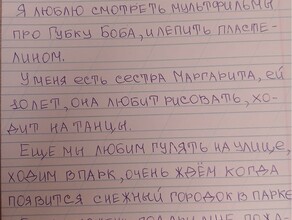 Я ЛЮБЛЮ СМОТРЕТЬ МУЛЬТФИЛЬМЫ
ПРО ГУБКУ БОБА, И ЛЕПИТЬ ПЛАСТЕ-
ЛИНОМ.
У МЕНЯ ЕСТЬ СЕСТРА МАРГАРИТА, ЕЙ
10 ЛЕТ, ОНА ЛЮБИТ РИСОВАТЬ, ХО-
ДИТ НА ТАНЦЫ.
ЕЩЕ МЫ ЛЮБИМ ГУЛЯТЬ НА УЛИЦЕ,
ХОДИМ В ПАРК, ОЧЕНЬ ЖДЁМ КОГДА
ПОЯВИТСЯ СНЕЖНЫЙ ГОРОДОК В ПАРКЕ